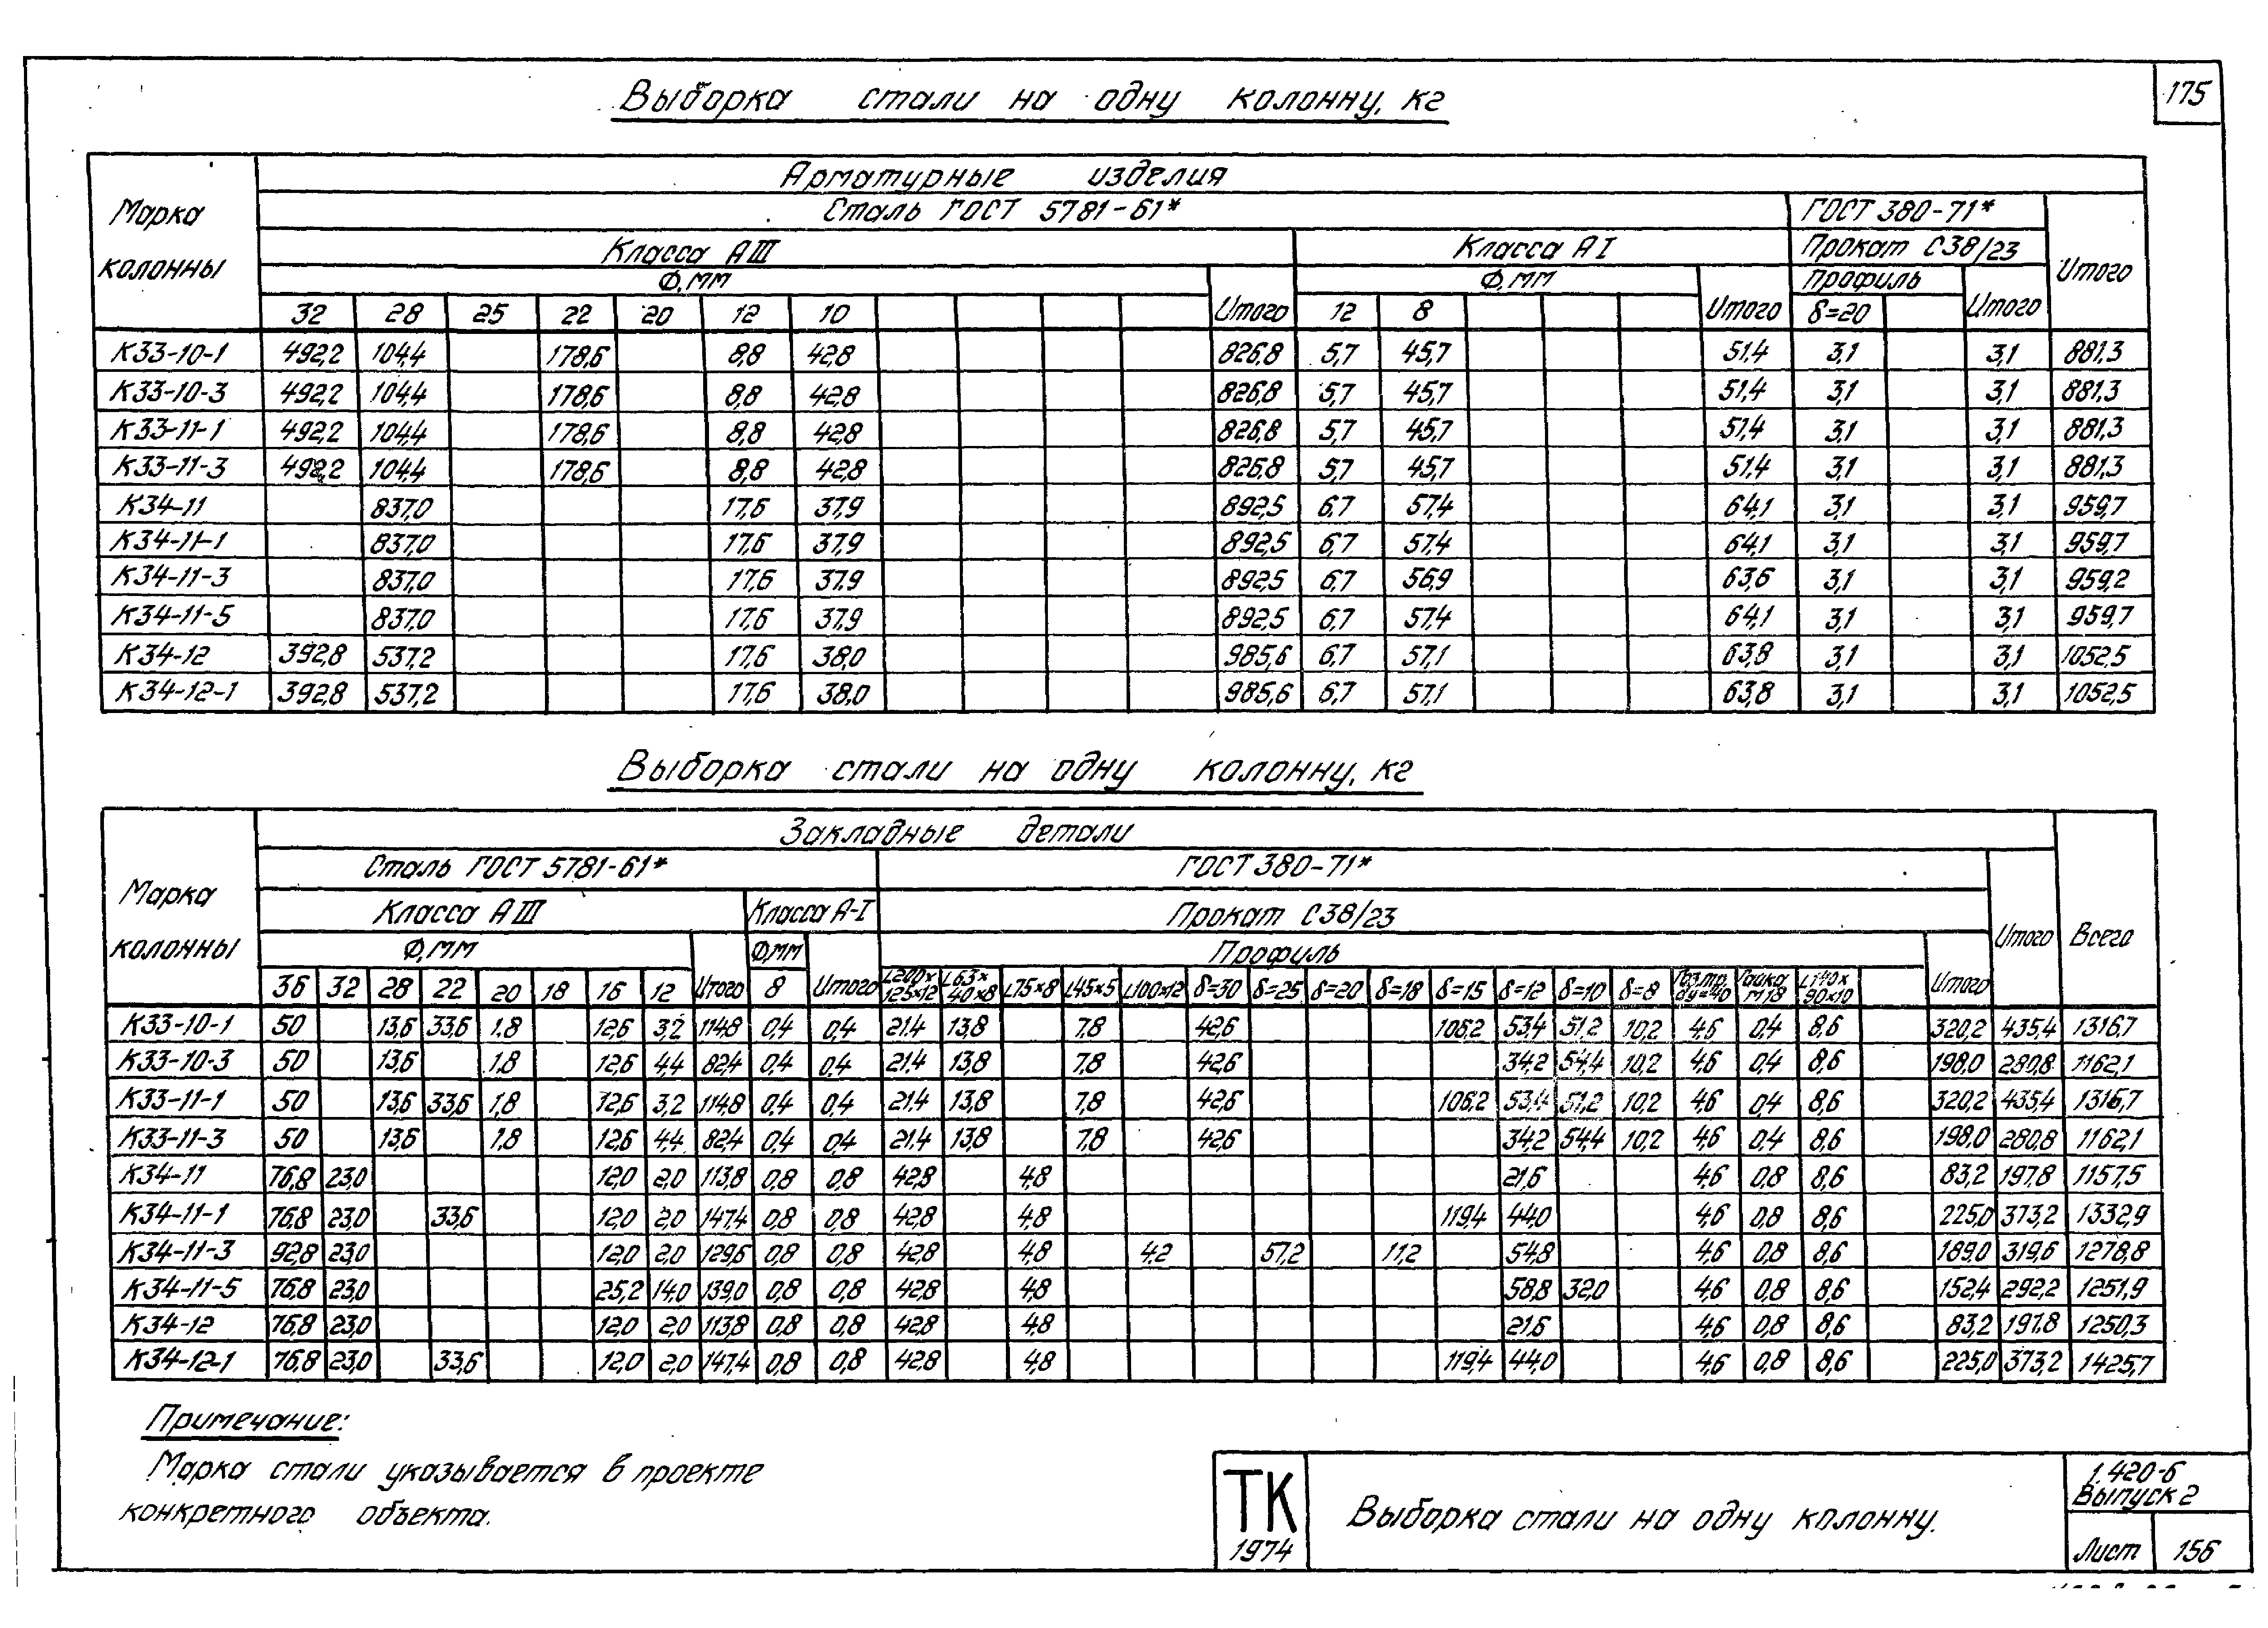 175
Выборка стали на одну колонну, кг
Марка колонны
Арматурные изделия
Сталь ГОСТ 5781-61* ГОСТ 380-71* Итого
Класса АIII Класса АI Прокат С38/23
Ф, мм Итого Ф, мм Итого Профиль Итого
32 28 25 22 20 12 10 12 8 δ=20
К33-10-1 492,2 104,4 178,6 8,8 42,8 826,8 5,7 45,7 51,4 3,1 3,1 881,3
К33-10-3 492,2 104,4 178,6 8,8 42,8 826,8 5,7 45,7 51,4 3,1 3,1 881,3
К33-11-1 492,2 104,4 178,6 8,8 42,8 826,8 5,7 45,7 51,4 3,1 3,1 881,3
К33-11-3 492,2 104,4 178,6 8,8 42,8 826,8 5,7 45,7 51,4 3,1 3,1 881,3
К34-11 837,0 17,6 37,9 892,5 6,7 57,4 64,1 3,1 3,1 959,7
К34-11-1 837,0 17,6 37,9 892,5 6,7 57,4 64,1 3,1 3,1 959,7
К34-11-3 837,0 17,6 37,9 892,5 6,7 56,9 63,6 3,1 3,1 959,2
К34-11-5 837,0 17,6 37,9 892,5 6,7 57,4 64,1 3,1 3,1 959,7
К34-12 392,8 537,2 17,6 38,0 985,6 6,7 57,1 63,8 3,1 3,1 1052,5
К34-12-1 392,8 537,2 17,6 38,0 985,6 6,7 57,1 63,8 3,1 3,1 1052,5
Выборка стали на одну колонну, кг
Марка колонны
Закладные детали Всего
Сталь ГОСТ 5781-61* ГОСТ 380-71* Итого
Класса АIII Класса А-I Прокат С38/23
Ф, мм Итого Ф,мм Итого Профиль Итого
36 32 28 22 20 18 16 12 8 L200×125×12 L63×40×8 L75×8 L45×5 L100×12 δ=30 δ=25 δ=20 δ=18 δ=15 δ=12 δ=10 δ=8 Газ.тр. dу=40 Гайка М18 L140×90×10
К33-10-1 50 13,6 33,6 1,8 12,6 3,2 114,8 0,4 0,4 21,4 13,8 7,8 42,6 106,2 53,4 51,2 10,2 4,6 0,4 8,6 320,2 435,4 1316,7
К33-10-3 50 13,6 1,8 12,6 4,4 82,4 0,4 0,4 21,4 13,8 7,8 42,6 34,2 54,4 10,2 4,6 0,4 8,6 198,0 280,8 1162,1
К33-11-1 50 13,6 33,6 1,8 12,6 3,2 114,8 0,4 0,4 21,4 13,8 7,8 42,6 106,2 53,4 51,2 10,2 4,6 0,4 8,6 320,2 435,4 1316,7
К33-11-3 50 13,6 1,8 12,6 4,4 82,4 0,4 0,4 21,4 13,8 7,8 42,6 34,2 54,4 10,2 4,6 0,4 8,6 198,0 280,8 1162,1
К34-11 76,8 23,0 12,0 2,0 113,8 0,8 0,8 42,8 4,8 21,6 4,6 0,8 8,6 83,2 197,8 1157,5
К34-11-1 76,8 23,0 33,6 12,0 2,0 147,4 0,8 0,8 42,8 4,8 119,4 44,0 4,6 0,8 8,6 225,0 373,2 1332,9
К34-11-3 92,8 23,0 12,0 2,0 129,6 0,8 0,8 42,8 4,8 4,2 57,2 11,2 54,8 4,6 0,8 8,6 189,0 319,6 1278,8
К34-11-5 76,8 23,0 25,2 14,0 139,0 0,8 0,8 42,8 4,8 58,8 32,0 4,6 0,8 8,6 152,4 292,2 1251,9
К34-12 76,8 23,0 12,0 2,0 113,8 0,8 0,8 42,8 4,8 21,6 4,6 0,8 8,6 83,2 197,8 1250,3
К34-12-1 76,8 23,0 33,6 12,0 2,0 147,4 0,8 0,8 42,8 4,8 119,4 44,0 4,6 0,8 8,6 225,0 373,2 1425,7
Примечание:
Марка стали указывается в проекте
конкретного объекта.
ТК
1974
Выборка стали на одну колонну.
1.420-6
Выпуск 2
Лист 156